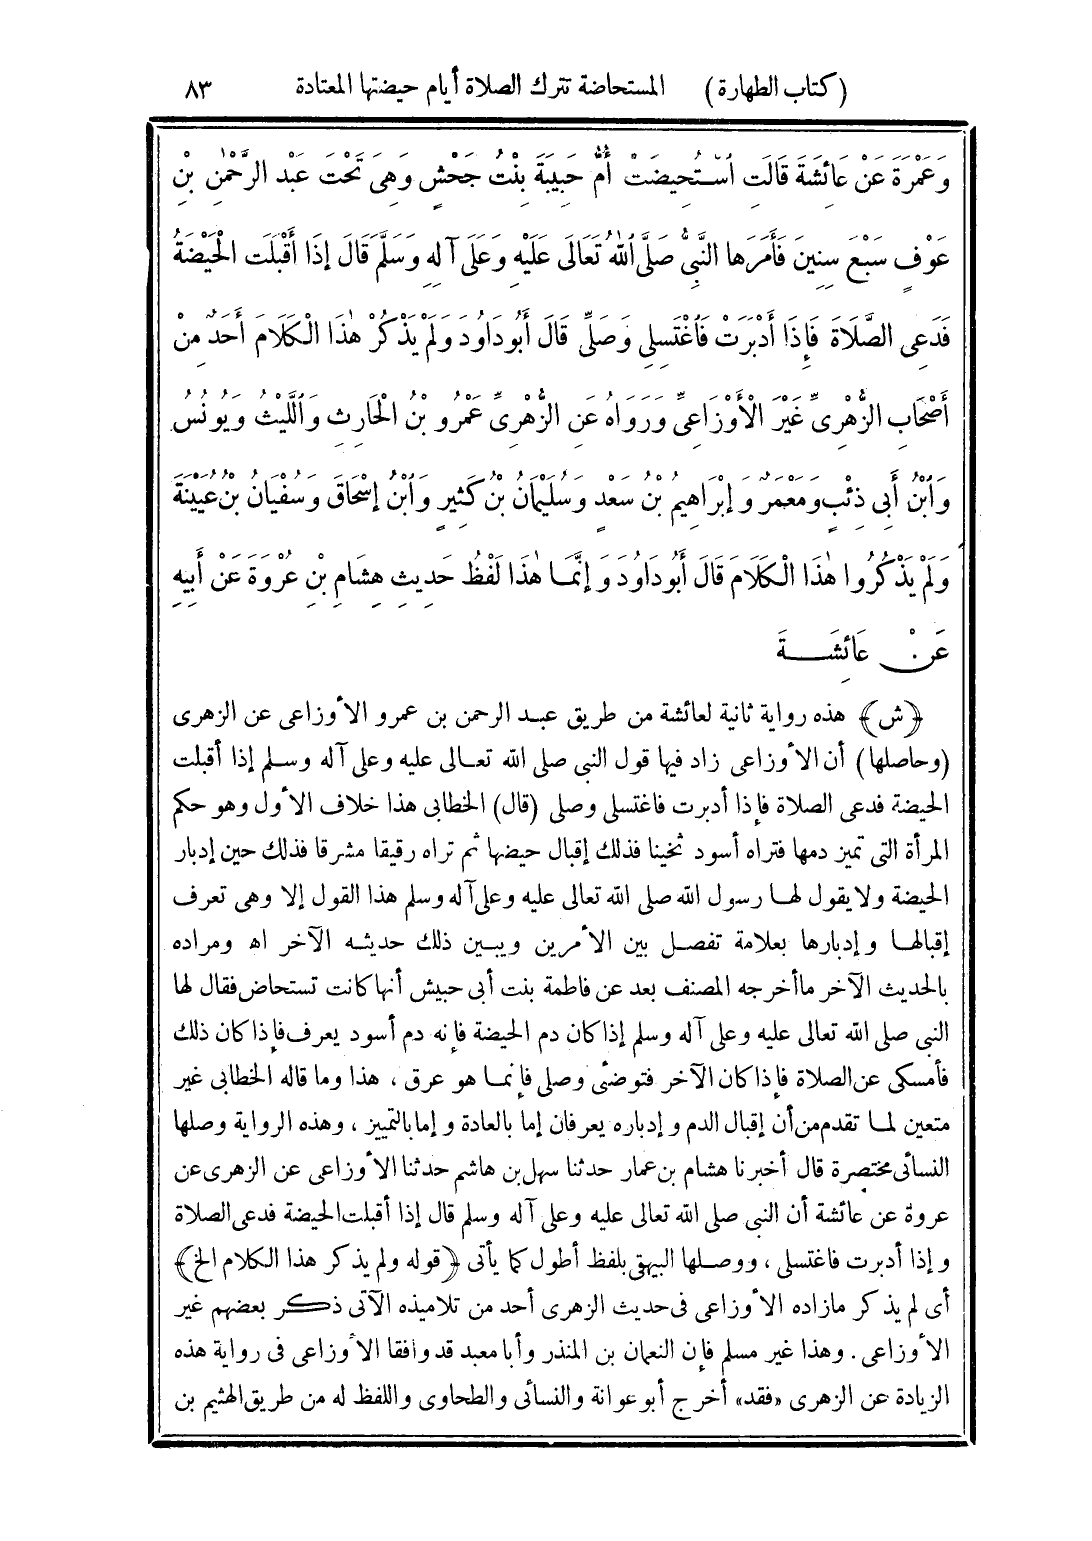 (كتاب الطهارة) المستحاضة تترك الصلاة أيام حيضتها المعتادة ٨٣
وَعَمْرَةَ عَنْ عَائِشَةَ قَالَتِ ٱسْتُحِيضَتْ أُمُّ حَبِيبَةَ بِنْتُ جَحْشٍ وَهِىَ تَحْتَ عَبْدِ الرَّحْمٰنِ بْنِ
عَوْفٍ سَبْعَ سِنِينَ فَأَمَرَهَا النَّبِىُّ صَلَّى ٱللهُ تَعَالَى عَلَيْهِ وَعَلَى آلِهِ وَسَلَّمَ قَالَ إِذَا أَقْبَلَتِ الْحَيْضَةُ
فَدَعِى الصَّلَاةَ فَإِذَا أَدْبَرَتْ فَاغْتَسِلِى وَصَلِّى قَالَ أَبُودَاوُدَ وَلَمْ يَذْكُرْ هٰذَا الْكَلَامَ أَحَدٌ مِنْ
أَصْحَابِ الزُّهْرِىِّ غَيْرَ الْأَوْزَاعِىِّ وَرَوَاهُ عَنِ الزُّهْرِىِّ عَمْرُو بْنُ الْحَارِثِ وَٱللَّيْثُ وَيُونُسُ
وَٱبْنُ أَبِى ذِئْبٍ وَمَعْمَرٌ وَإِبْرَاهِيمُ بْنُ سَعْدٍ وَسُلَيْمَانُ بْنُ كَثِيرٍ وَٱبْنُ إِسْحَاقَ وَسُفْيَانُ بْنُ عُيَيْنَةَ
وَلَمْ يَذْكُرُوا هٰذَا الْكَلَامَ قَالَ أَبُودَاوُدَ وَإِنَّمَا هٰذَا لَفْظُ حَدِيثِ هِشَامِ بْنِ عُرْوَةَ عَنْ أَبِيهِ
عَنْ عَائِشَةَ
﴿ش﴾ هذه رواية ثانية لعائشة من طريق عبد الرحمن بن عمرو الأوزاعى عن الزهرى
(وحاصلها) أن الأوزاعى زاد فيها قول النبى صلى الله تعالى عليه وعلى آله وسلم إذا أقبلت
الحيضة فدعى الصلاة فإذا أدبرت فاغتسلى وصلى (قال) الخطابى هذا خلاف الأول وهو حكم
المرأة التى تميز دمها فتراه أسود ثخينا فذلك إقبال حيضها ثم تراه رقيقا مشرقا فذلك حين إدبار
الحيضة ولا يقول لها رسول الله صلى الله تعالى عليه وعلى آله وسلم هذا القول إلا وهى تعرف
إقبالها وإدبارها بعلامة تفصل بين الأمرين ويبين ذلك حديثه الآخر اه ومراده
بالحديث الآخر ماأخرجه المصنف بعد عن فاطمة بنت أبى حبيش أنها كانت تستحاض فقال لها
النبى صلى الله تعالى عليه وعلى آله وسلم إذا كان دم الحيضة فإنه دم أسود يعرف فإذا كان ذلك
فأمسكى عن الصلاة فإذا كان الآخر فتوضئى وصلى فإنما هو عرق ، هذا وما قاله الخطابى غير
متعين لما تقدم من أن إقبال الدم وإدباره يعرفان إما بالعادة وإما بالتمييز ، وهذه الرواية وصلها
النسائى مختصرة قال أخبرنا هشام بن عمار حدثنا سهل بن هاشم حدثنا الأوزاعى عن الزهرى عن
عروة عن عائشة أن النبى صلى الله تعالى عليه وعلى آله وسلم قال إذا أقبلت الحيضة فدعى الصلاة
وإذا أدبرت فاغتسلى ، ووصلها البيهقى بلفظ أطول كما يأتى ﴿قوله ولم يذكر هذا الكلام الخ﴾
أى لم يذكر مازاده الأوزاعى فى حديث الزهرى أحد من تلاميذه الآتى ذكر بعضهم غير
الأوزاعى . وهذا غير مسلم فإن النعمان بن المنذر وأبا معبد قد وافقا الأوزاعى فى رواية هذه
الزيادة عن الزهرى «فقد» أخرج أبو عوانة والنسائى والطحاوى واللفظ له من طريق الهثيم بن